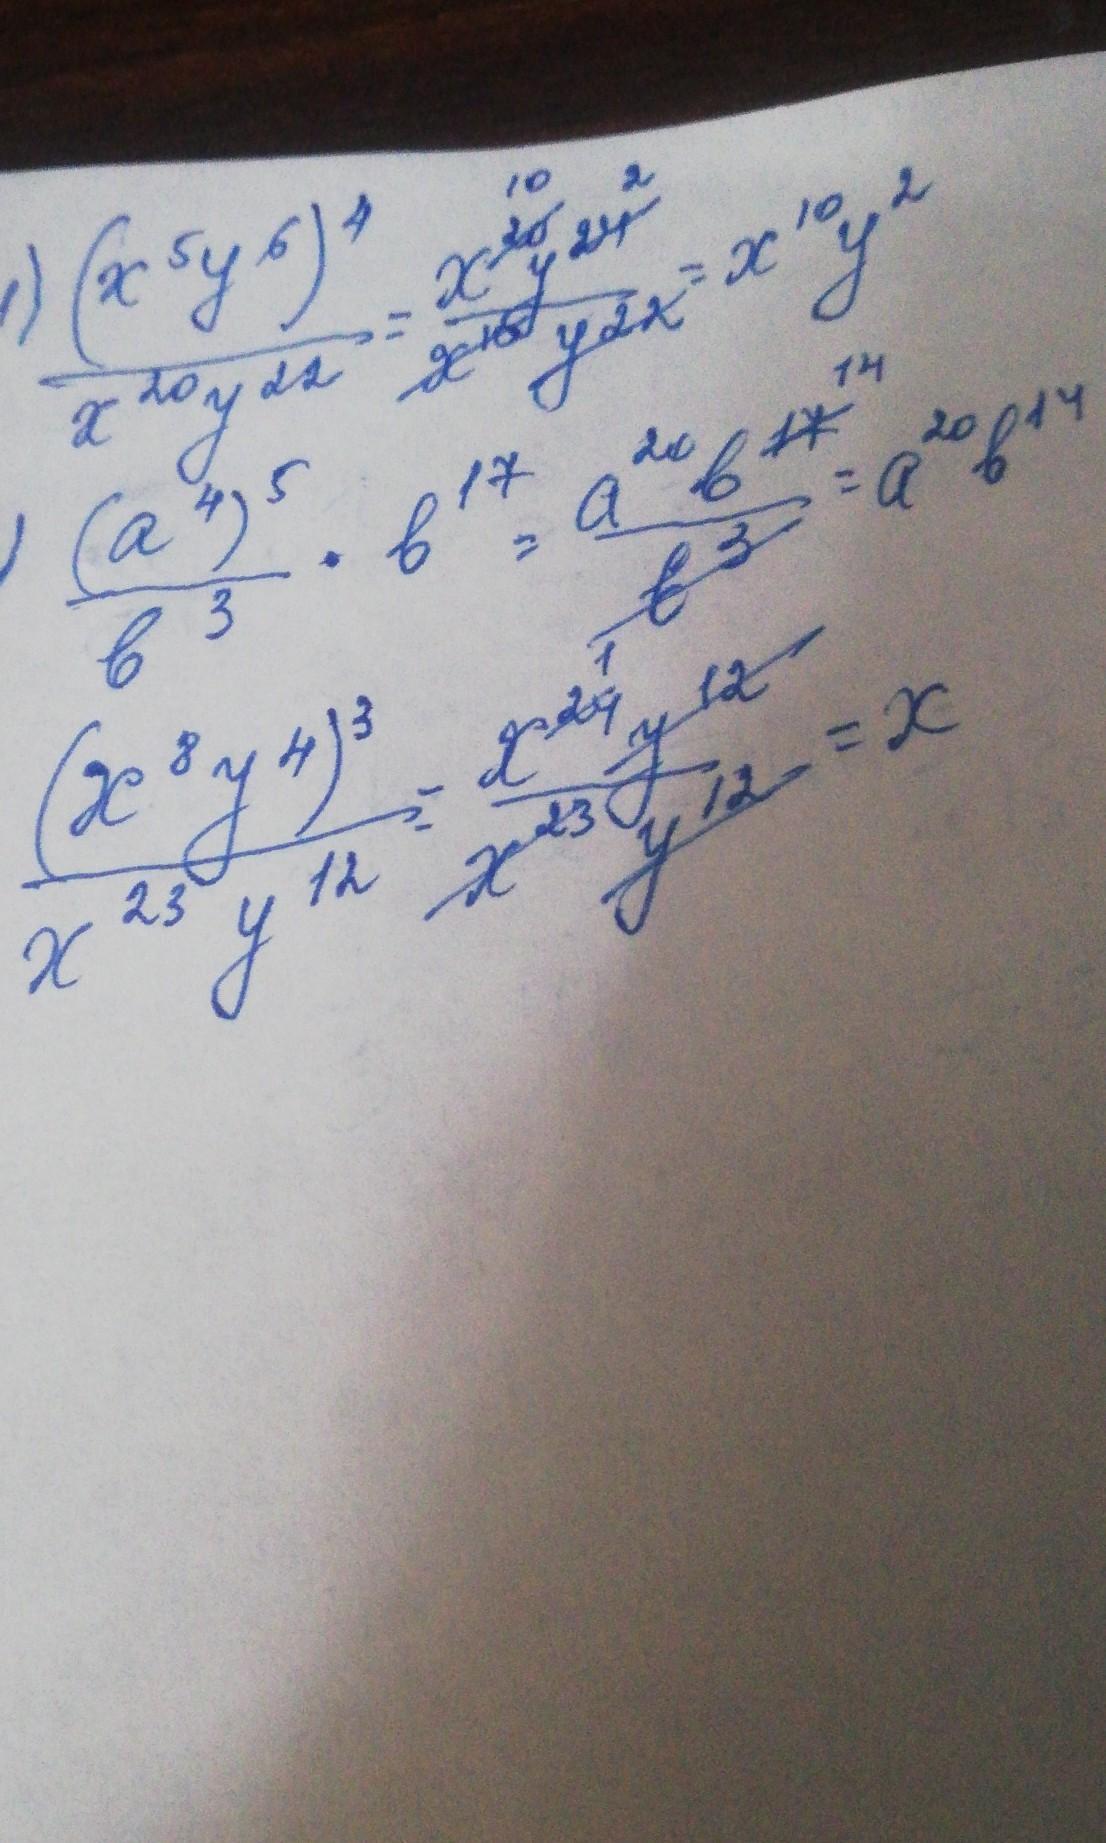 1) (x⁵y⁶)⁴ / x²⁰y²² = x²⁰y²⁴ / x¹⁰y²² = x¹⁰y²
) (a⁴)⁵ / b³ · b¹⁷ = a²⁰b¹⁷ / b³ = a²⁰b¹⁴
(x⁸y⁴)³ / x²³y¹² = x²⁴y¹² / x²³y¹² = x